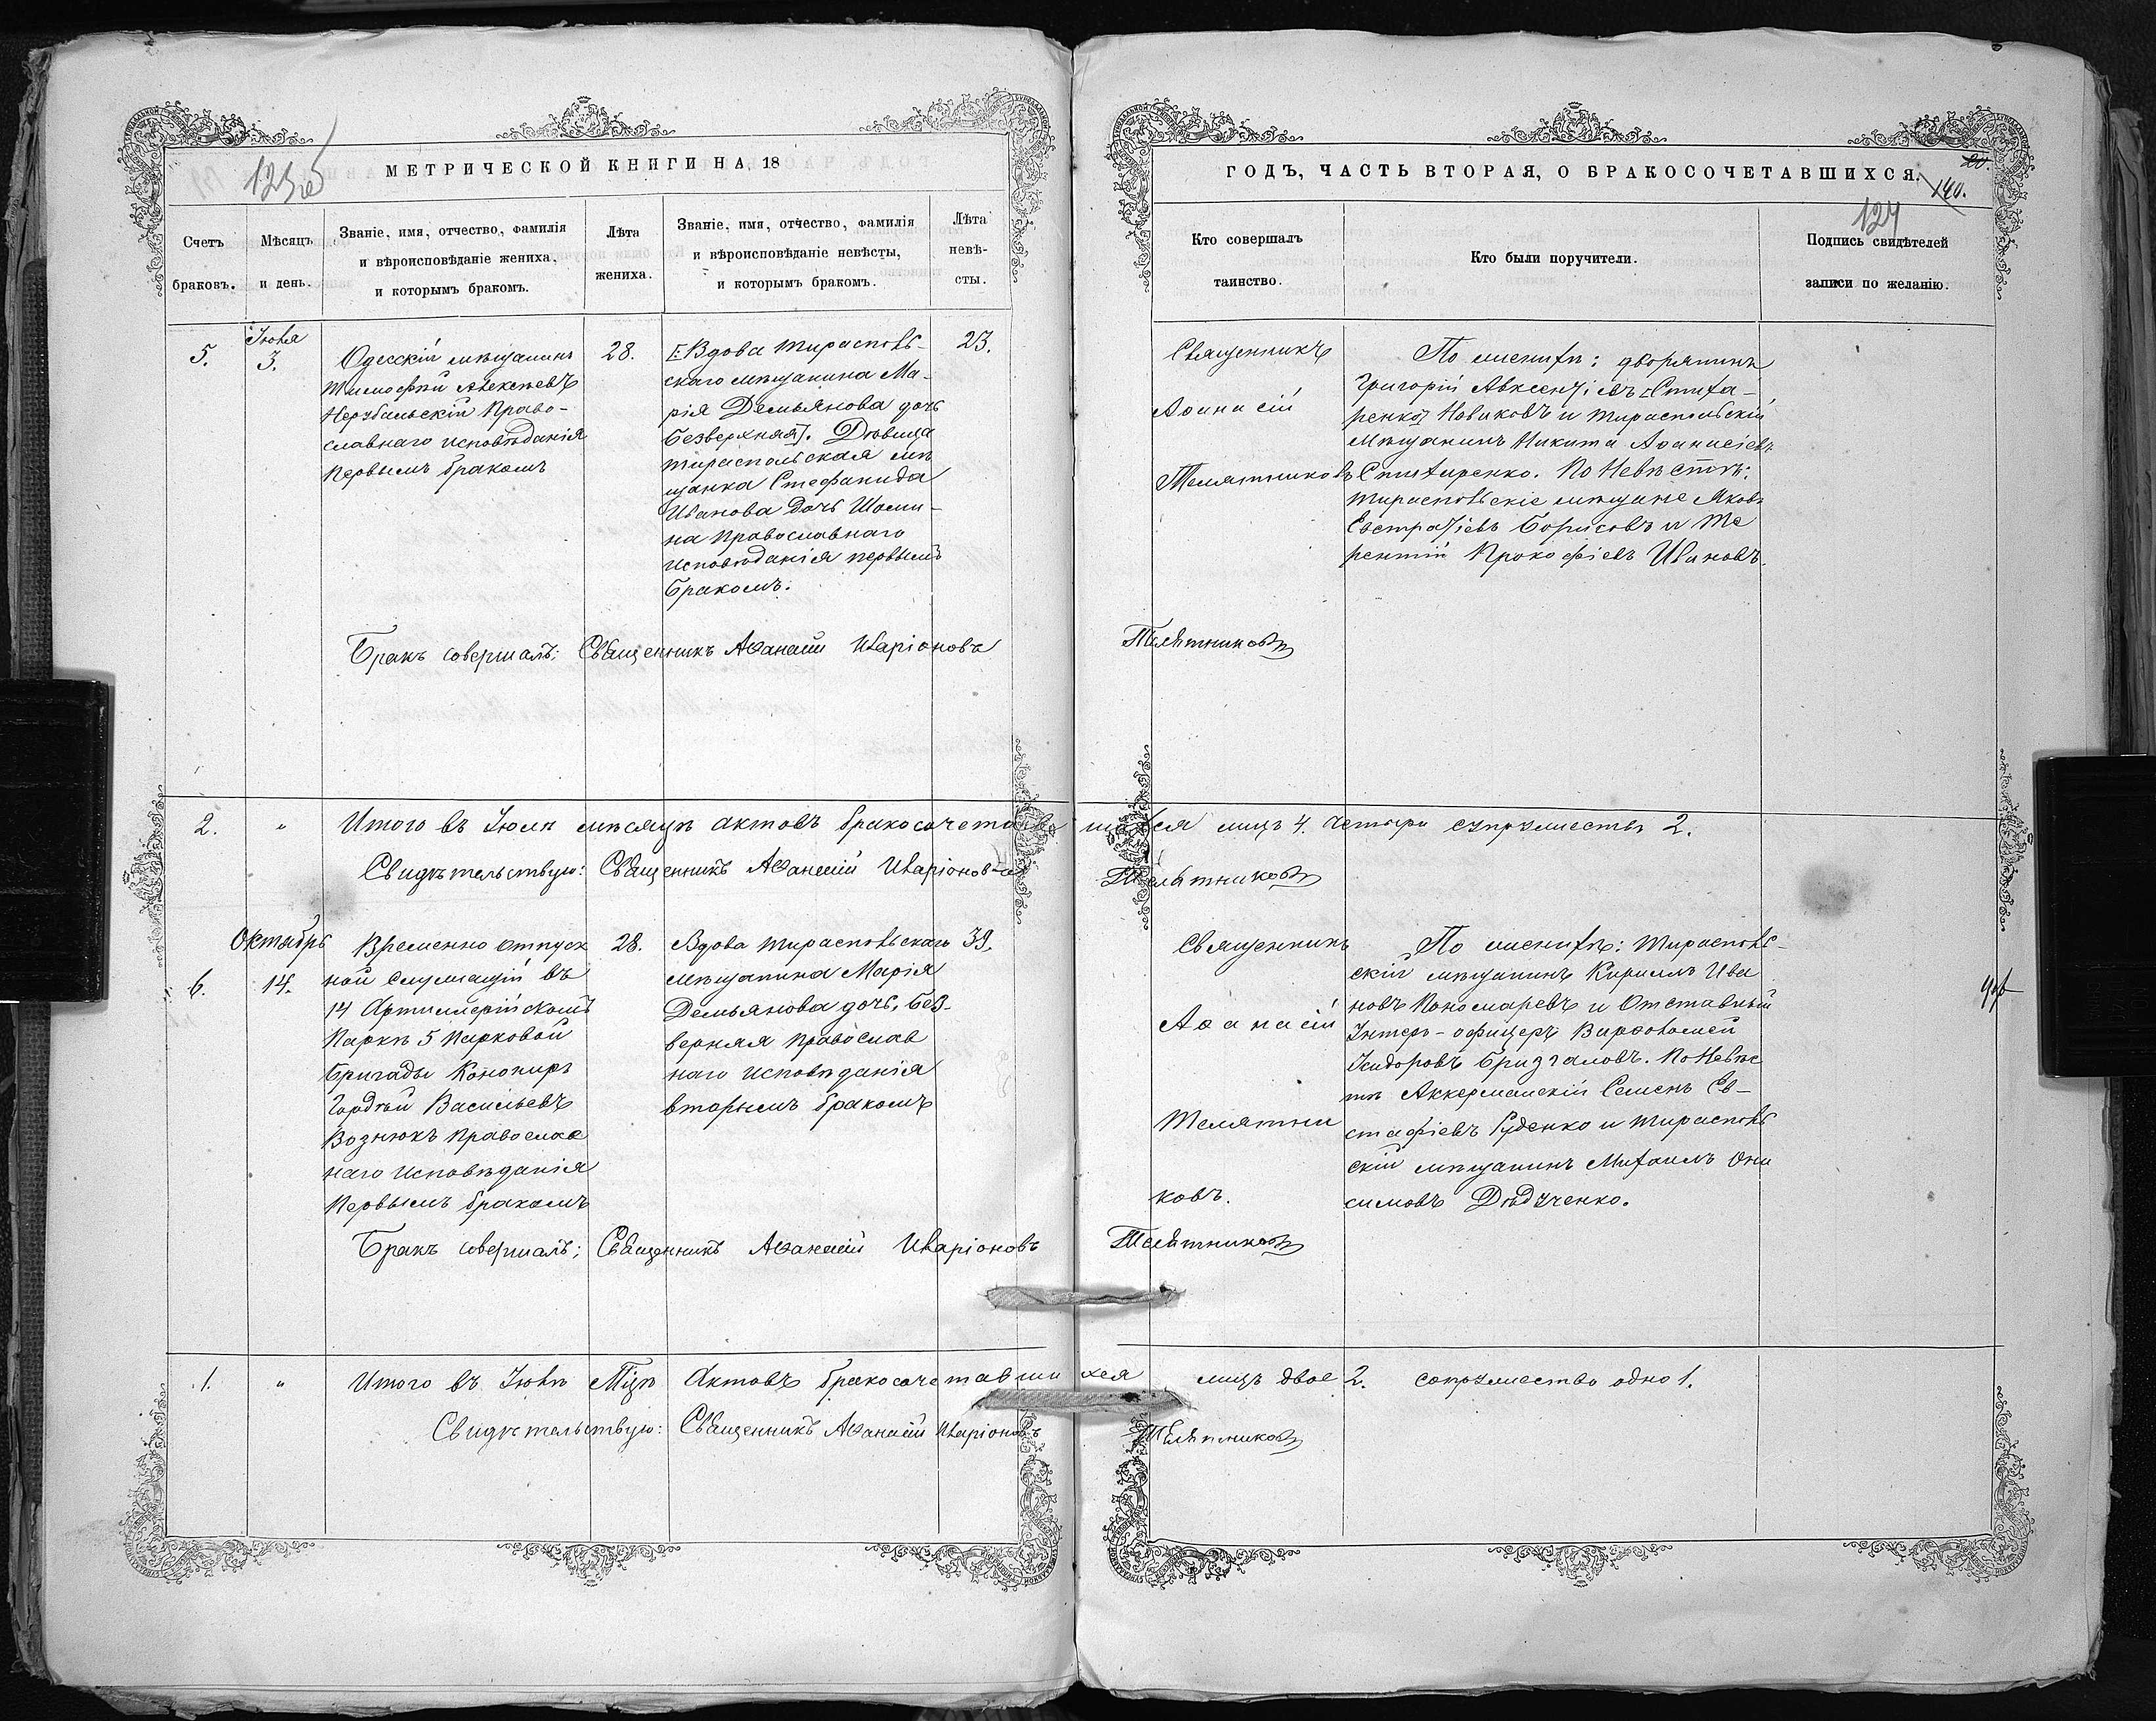 МЕТРИЧЕСКОЙ КНИГИ НА 18
ГОДЪ, ЧАСТЬ ВТОРАЯ, О БРАКОСОЧЕТАВШИХСЯ.
140.
124
Счетъ
браковъ.
Мѣсяцъ
и день.
Званіе, имя, отчество, фамилія
и вѣроисповѣданіе жениха,
и которымъ бракомъ.
Лѣта
жениха.
Званіе, имя, отчество, фамилія
и вѣроисповѣданіе невѣсты,
и которымъ бракомъ.
Лѣта
невѣ-
сты.
Кто совершалъ
таинство.
Кто были поручители.
Подпись свидѣтелей
записи по желанію.
5.
Іюля
3.
Одесскій мѣщанинъ
Тимофѣй Алексѣевъ
Право-
славнаго исповѣданія
первымъ бракомъ
28.
[Вдова тирасполь-
скаго мѣщанина Ма-
рія Демьянова дочь
Безверхняя]. Дѣвица
тираспольская мѣ
щанка Стефанида
Иванова дочь Шоми-
на православнаго
исповѣданія первымъ
бракомъ.
23.
Священникъ
Аѳанасій
Телятниковъ
По женихѣ: дворянинъ
Григорій Авксентіевъ [Спита-
ренко] Новиковъ и тираспольскій
мѣщанинъ Никита Аѳанасіевъ
Спитаренко. По невѣстѣ:
тираспольскіе мѣщане Яковъ
Евстратіевъ Борисовъ и Те
рентій Прокофіевъ Ивановъ.
Бракъ совершалъ: Священникъ Аѳанасій Иларіоновъ Телятниковъ
2. " Итого въ Іюлѣ мѣсяцѣ актовъ бракосочетавшихся лицъ 4. четыре супружествъ 2.
Свидѣтельствую: Священникъ Аѳанасій Иларіоновъ Телятниковъ
Октябрь
6. 14.
Временно отпуск
ной служащій въ
14 Артиллерійскомъ
Паркѣ 5 Парковой
бригады Канониръ
Гордѣй Васильевъ
Вознюкъ православ
наго исповѣданія
первымъ бракомъ
28.
Вдова тираспольскаго
мѣщанина Марія
Демьянова дочь, Без-
верхняя православ
наго исповѣданія
вторымъ бракомъ
39.
Священникъ
Аѳанасій
Телятни
ковъ.
По женихѣ: тирасполь-
скій мѣщанинъ Кириллъ Ива
новъ Пономаревъ и Отставный
Унтеръ-офицеръ Варфоломей
Исидоровъ Бризгаловъ. По невѣс
тѣ Аккерманскій Семенъ Ев-
стафіевъ Руденко и тирасполь
скій мѣщанинъ Михаилъ Они
симовъ Дѣдученко.
Бракъ совершалъ: Священникъ Аѳанасій Иларіоновъ Телятниковъ
1. " Итого въ Іюлѣ Мцѣ Актовъ бракосочетавшихся лицъ двое 2. супружество одно 1.
Свидѣтельствую: Священникъ Аѳанасій Иларіоновъ Телятниковъ